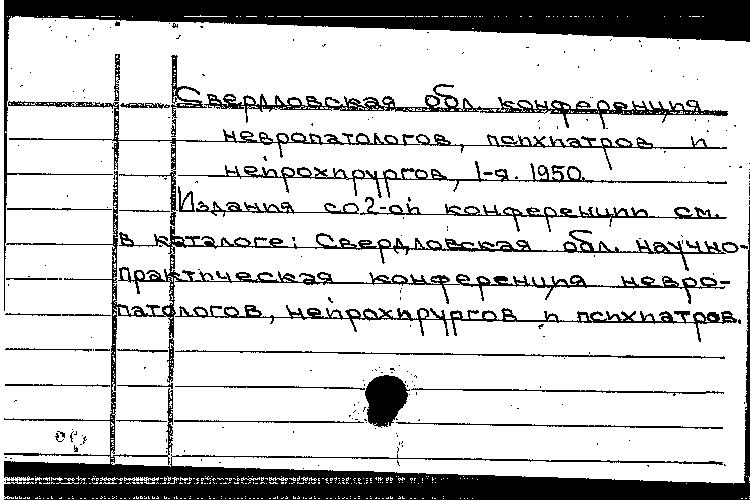 Свердловская обл. конференция
невропатологов, психиатров и
нейрохирургов, 1-я. 1950.
Издания со 2-ой конференции см.
в каталоге: Свердловская обл. научно-
практическая конференция невро-
патологов, нейрохирургов и психиатров.